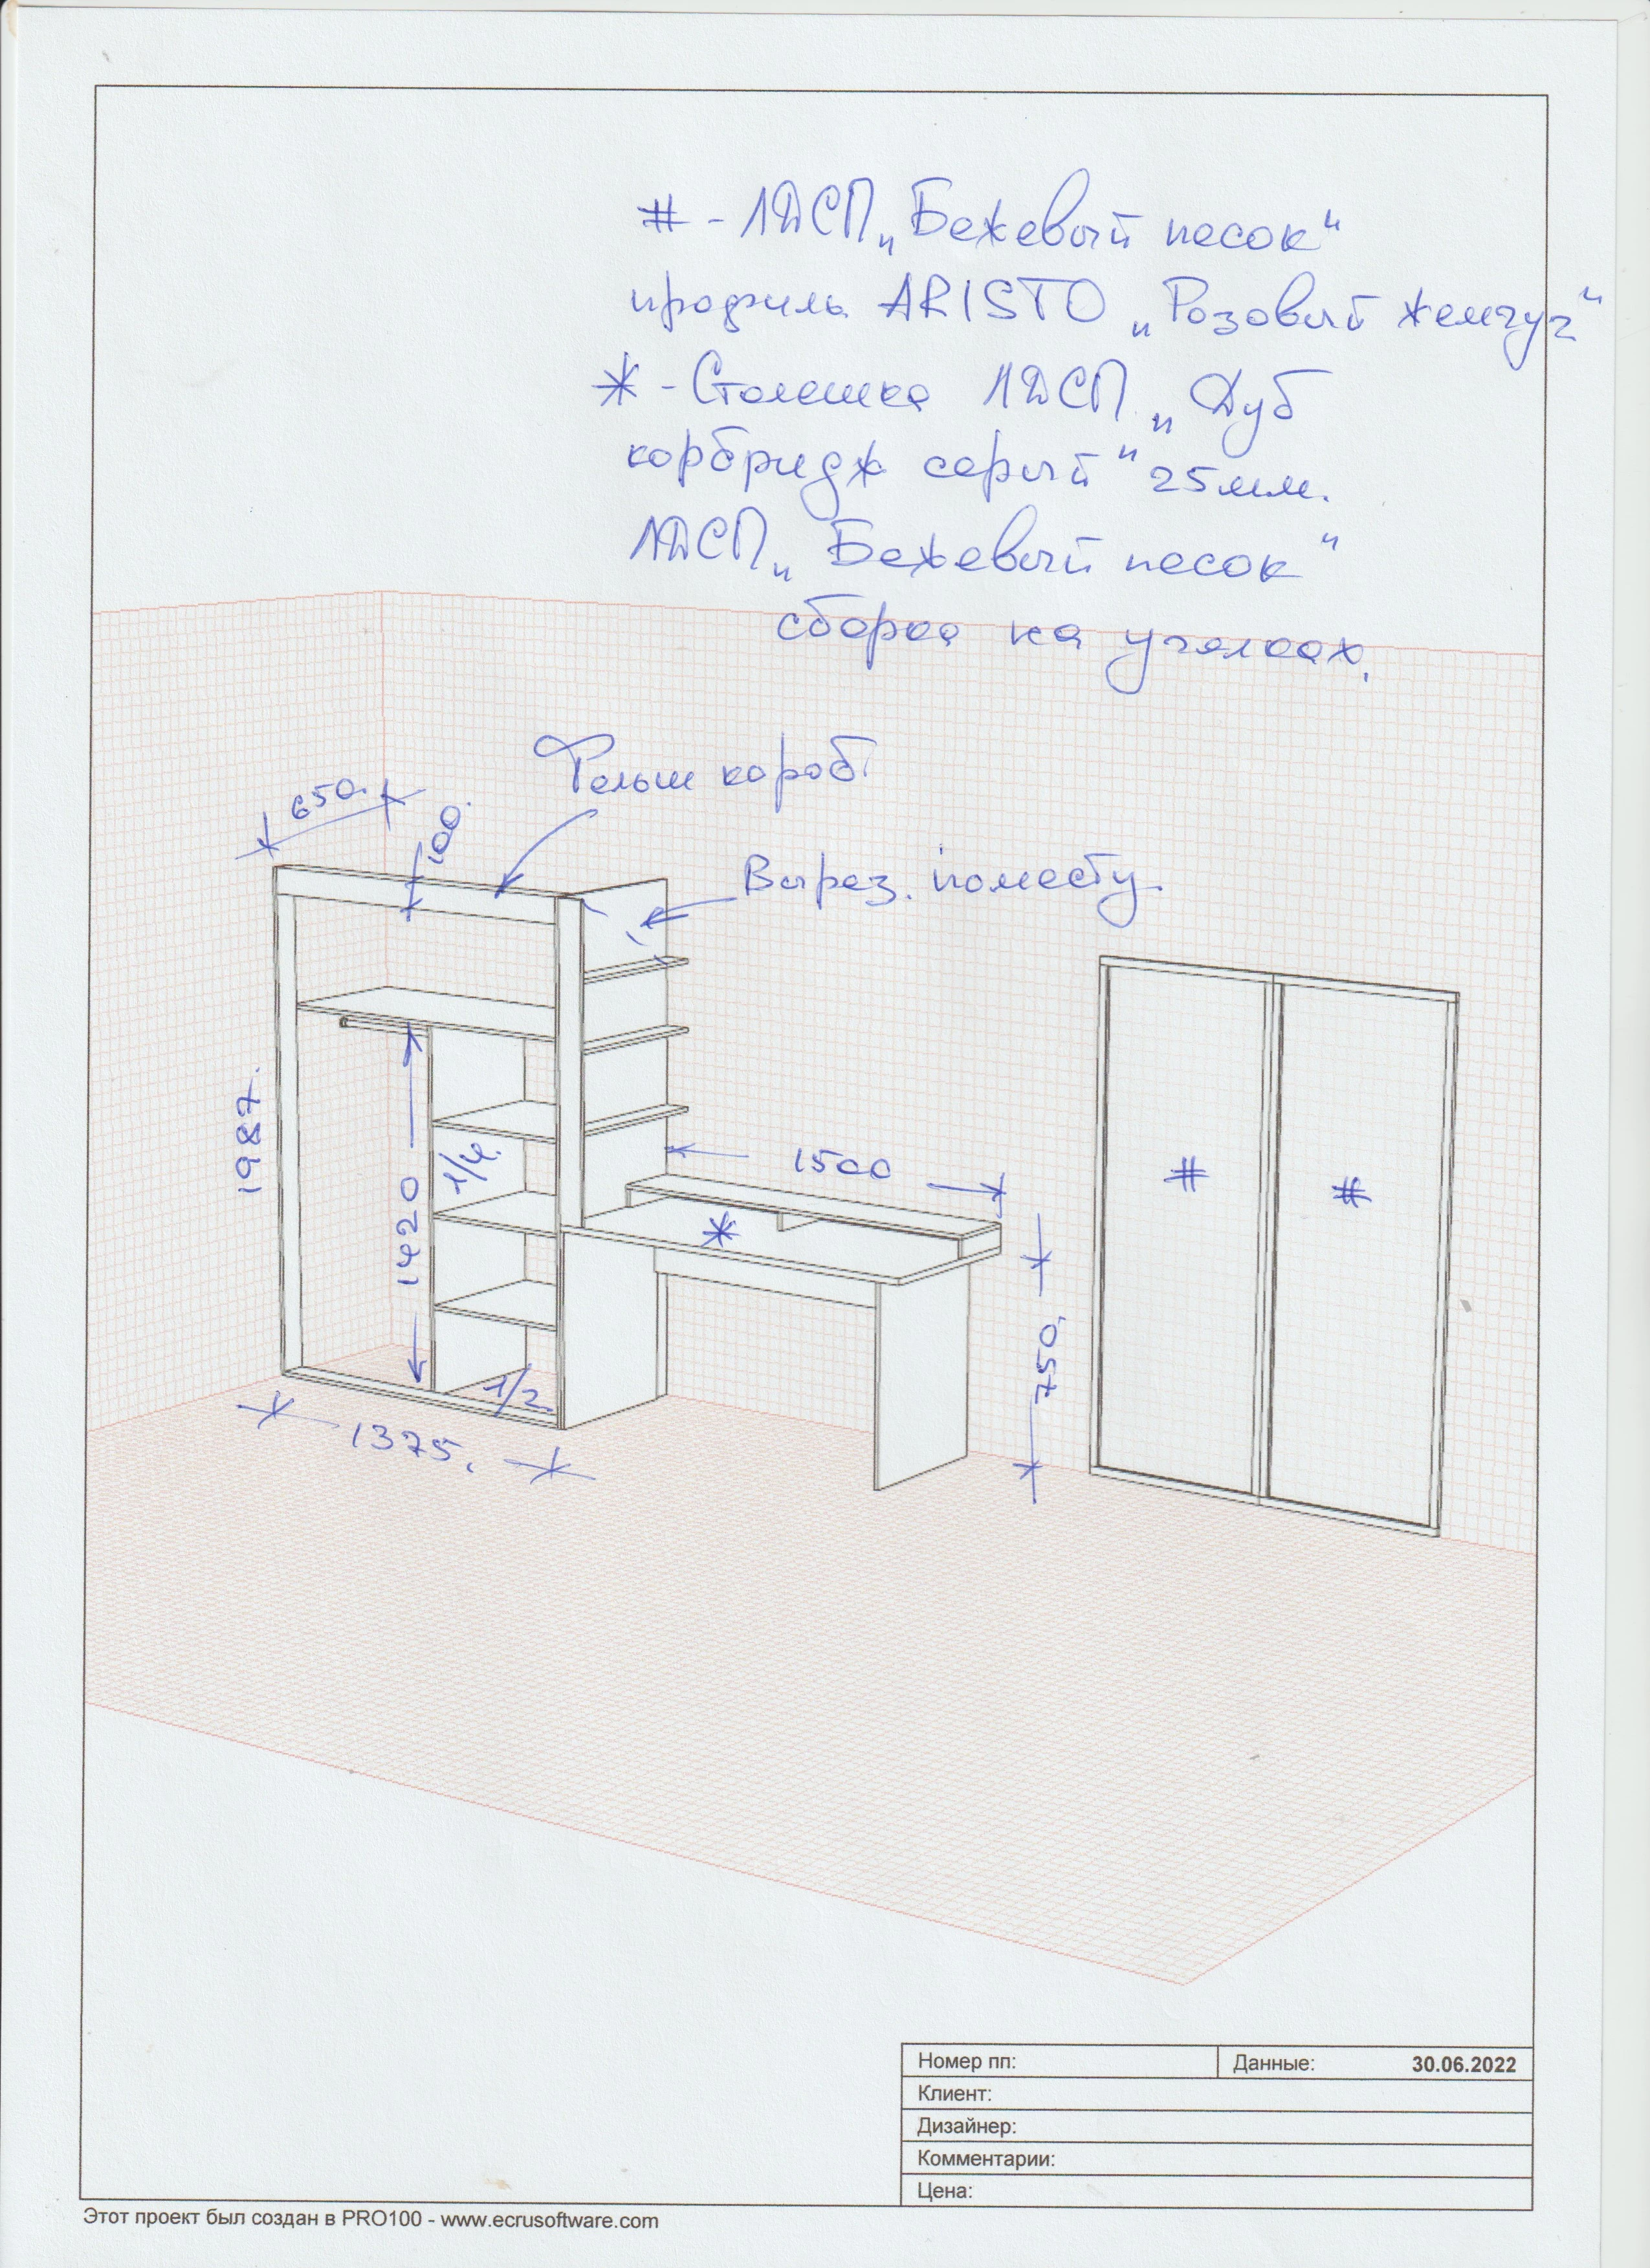 # - ЛДСП „Бежевый песок"
профиль ARISTO „Розовый жемчуг"
* - Столешка ЛДСП „Дуб
корбридж серый" 25мм.
ЛДСП „Бежевый песок"
сборка на уголках.
Фальш короб.
650.
100.
Вырез. по месту.
1987.
1420
1/4.
1500
*
#
#
750.
1/2
1375.
Номер пп: Данные: 30.06.2022
Клиент:
Дизайнер:
Комментарии:
Цена:
Этот проект был создан в PRO100 - www.ecrusoftware.com